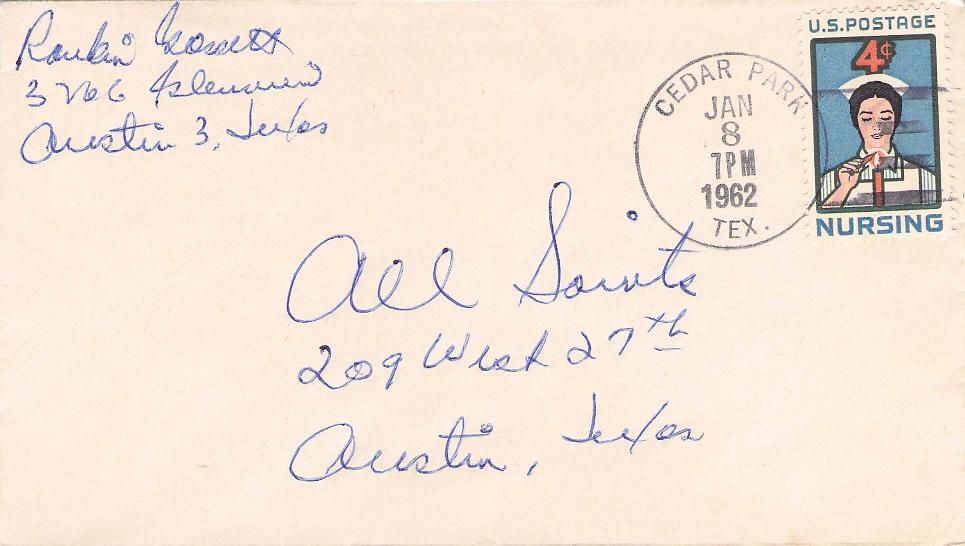 Rankin Gossett
3706 Glenview
Austin 3, Texas
U.S. POSTAGE
4¢
NURSING
CEDAR PARK
JAN
8
7PM
1962
TEX.
All Saints
209 West 27th
Austin, Texas